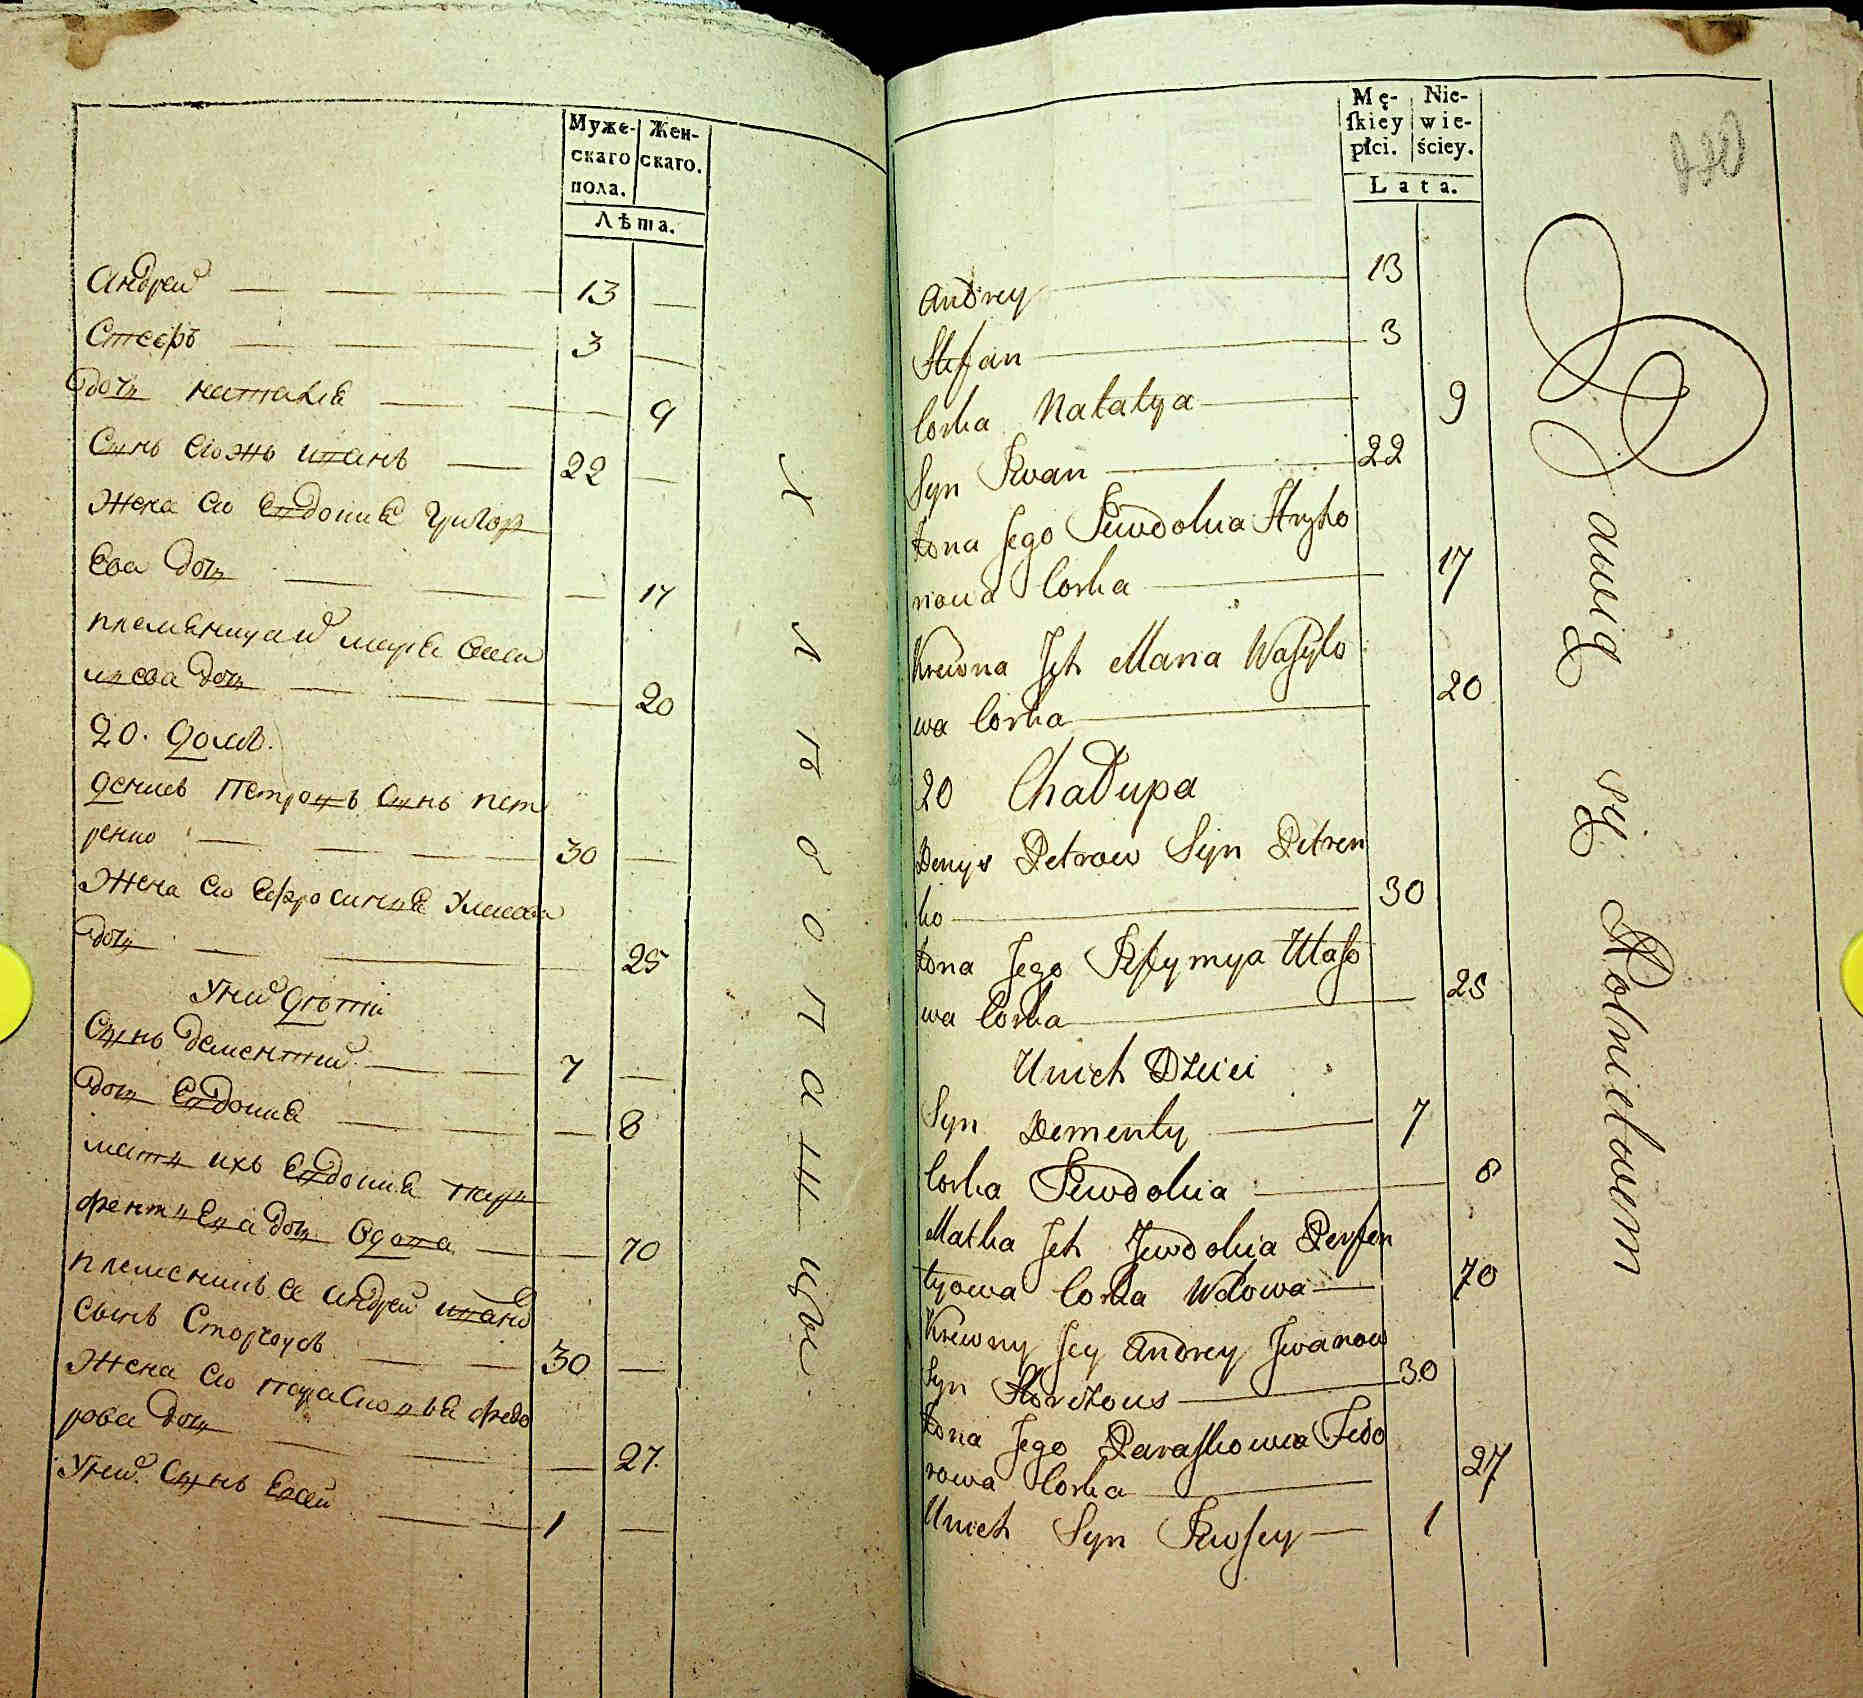 Муже-
скаго
пола.
Жен-
скаго.
Лѣта.
Андрей 13
Стефъ 3
дочь наталия 9
Сынъ Еіожъ иванъ 22
Жена Ею Евдокия Григор
Ева дочь 17
племеница их мария Васи
иева дочь 20
20. домъ.
денисъ Петровъ Сынъ пет
ренко 30
Жена Ею Ефросиния Уласова
дочь 25
Уних дети
Сынъ дементий 7
дочь Евдокия 8
мать ихъ Евдокия пар
фентиева дочь вдова 70
племеникъ Ее андрей иванов
Сынъ Сторчоусъ 30
Жена Ею парасковья федо
рова дочь 27
Уних Сынъ Евсей 1
хлѣбопашцы.
Mę-
skiey
płci.
Nie-
wie-
ściey.
Lata.
Andrey 13
Stefan 3
Corka Natalya 9
Syn Iwan 22
Żona Jego Iewdokia Hryho
rowa Corka 17
Krewna Jch Maria Wasylo
wa Corka 20
20 Chałupa
Denys Petrow Syn Petren
ko 30
Żona Jego Jefymya Ułaso
wa Corka 25
Unich Dzieci
Syn Dementy 7
Corka Jewdokia 8
Matka Jch Jewdokia Perfen
tyowa Corka Wdowa 70
Krewny Jey Andrey Jwanow
Syn Storczous 30
Żona Jego Paraskowia Fedo
rowa Corka 27
Unich Syn Jewsey 1
Bawią się Rolnictwem